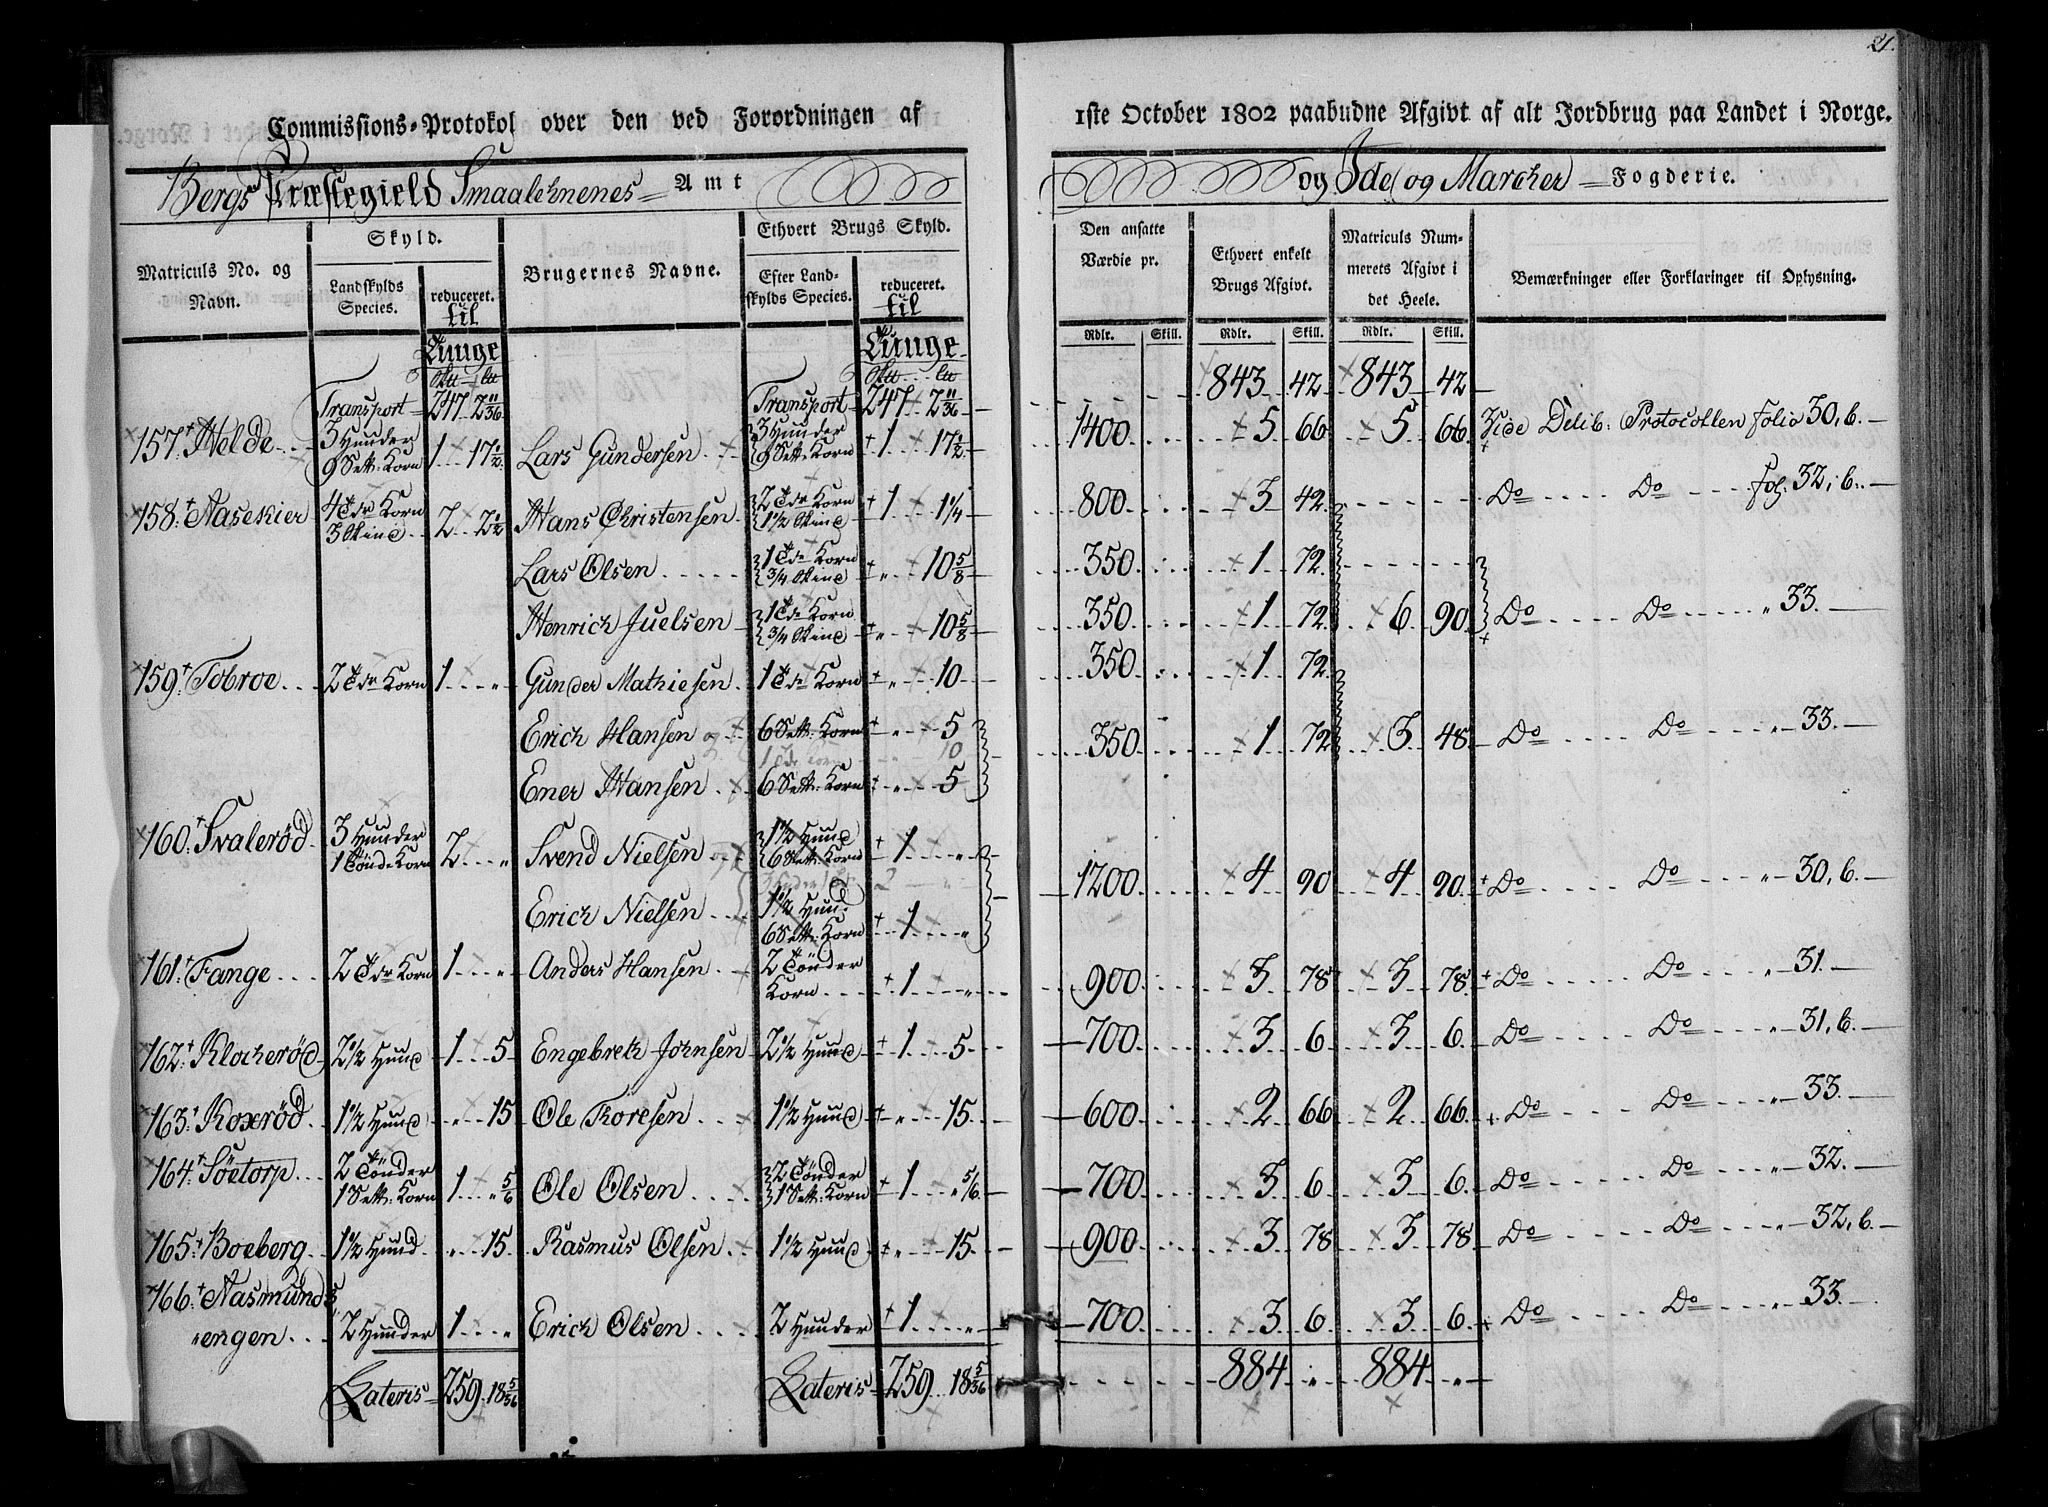 21.
Commissions-Protokol over den ved Forordningen af 1ste October 1802 paabudne Afgivt af alt Jordbrug paa Landet i Norge.
Bergs Præstegield Smaalehnenes Amt og Ide og Marcher Fogderie.
Matriculs No. og Navn. Skyld. Brugernes Navne. Ethvert Brugs Skyld. Den ansatte Værdie pr. Ethvert enkelt Brugs Afgivt. Matriculs Nummerets Afgivt i det Heele. Bemærkninger eller Forklaringer til Oplysning.
Landskylds Species. reduceret. til Tunge Efter Landskylds Species. reduceret. til Tunge Rdlr. Skill. Rdlr. Skill. Rdlr. Skill.
Transport 247 2 11/36 Transport 247 2 11/36 843 42 843 42
157 Helde 3 Hunder 9 Sett: Korn 1 17 1/2 Lars Gundersen 3 Hunder 9 Sett: Korn 1 17 1/2 1400 5 66 5 66 Vide Delib: Protocollen folio 30,b.
158 Aasekier 4 Tdr Korn 3 Skind 2 2 1/2 Hans Christensen 2 Tdr Korn 1 1/2 Skind 1 1 1/4 800 3 42 Do Do fol. 32,b.
Lars Olsen 1 Tde Korn 3/4 Skind " 10 5/8 350 1 72
Henrich Juelsen 1 Tde Korn 3/4 Skind " 10 5/8 350 1 72 6 90 Do Do " 33.
159 Tobroe 2 Tdr Korn 1 " Gunder Mathiesen 1 Tde Korn " 10 350 1 72
Erich Hansen og 6 Sett: Korn " 5 350 1 72 3 48 Do Do " 33.
1 Tde Korn 10
Ener Hansen 6 Sett: Korn " 5
160 Svalerød 3 Hunder 1 Tønde Korn 2 " Svend Nielsen og 1 1/2 Hund 6 Sett: Korn 1 " 1200 4 90 4 90 Do Do " 30,b.
2 "
Erich Nielsen 1 1/2 Hund 6 Sett: Korn 1 "
161 Fange 2 Tdr Korn 1 " Anders Hansen 2 Tønder Korn 1 " 900 3 78 3 78 Do Do " 31.
162 Klocherød 2 1/2 Hund 1 5 Engebreth Johnsen 2 1/2 Hund 1 5 700 3 6 3 6 Do Do " 31,b.
163 Koxrød 1 1/2 Hund " 15 Ole Toresen 1 1/2 Hund " 15 600 2 66 2 66 Do Do " 33.
164 Søetorp 2 Tønder 1 Sett: Korn 1 " 5/6 Ole Olsen 2 Tønder 1 Sett: Korn 1 " 5/6 700 3 6 3 6 Do Do " 32.
165 Boeberg 1 1/2 Hund " 15 Rasmus Olsen 1 1/2 Hund " 15 900 3 78 3 78 Do Do " 32,b.
166 Aasmunds-
engen 2 Hunder 1 " Erich Olsen 2 Hunder 1 " 700 3 6 3 6 Do Do " 33.
Lateris 259 18 5/36 Lateris 259 18 5/36 884 " 884 "